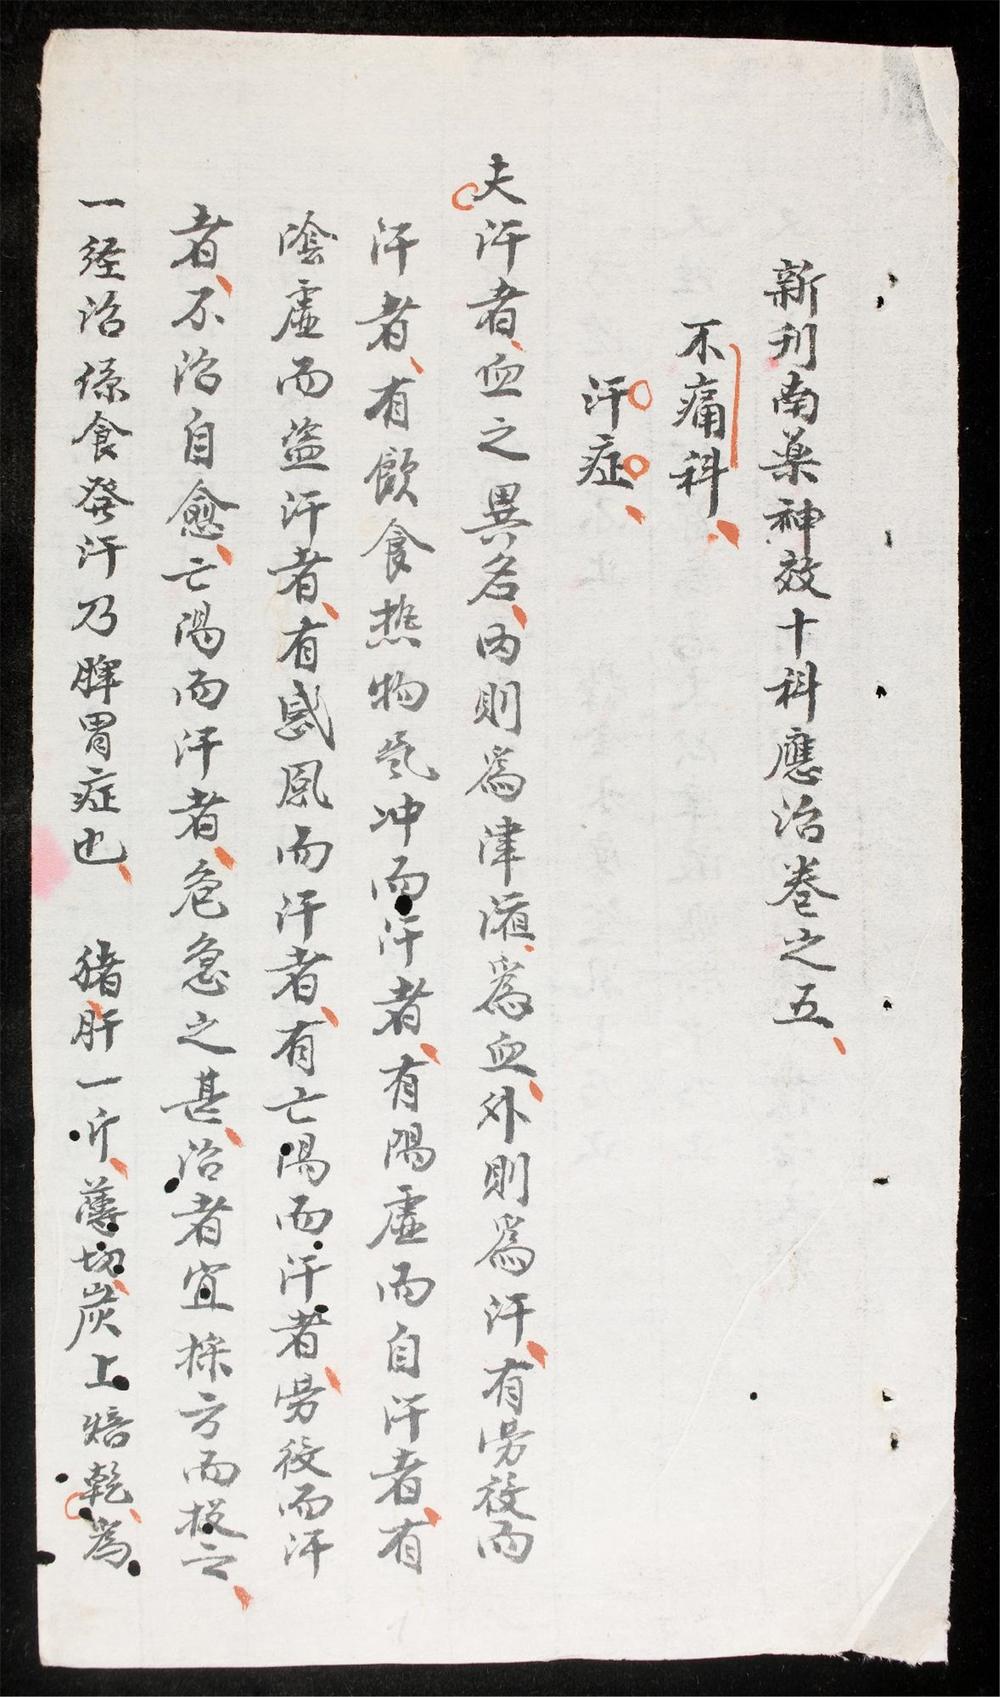 新刊南药神效十科應治卷之五
不痛科
汗症
夫汗者血之異名内則爲津液爲血外則爲汗有劳役而
汗者有飲食热物氣冲而汗者有陽虛而自汗者有
陰虛而盗汗者有感風而汗者有亡陽而汗者劳役而汗
者不治自愈亡陽而汗者危急之甚治者宜採方而投之
一經治係食發汗乃脾胃症也 猪肝一斤薄切炭上焙乾為